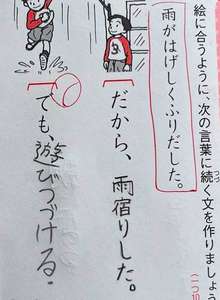 絵に合うように、次の言葉に続く文を作りましょ
つづ
雨がはげしくふりだした。
だから、雨宿りした。
ても、遊びつづける.
3